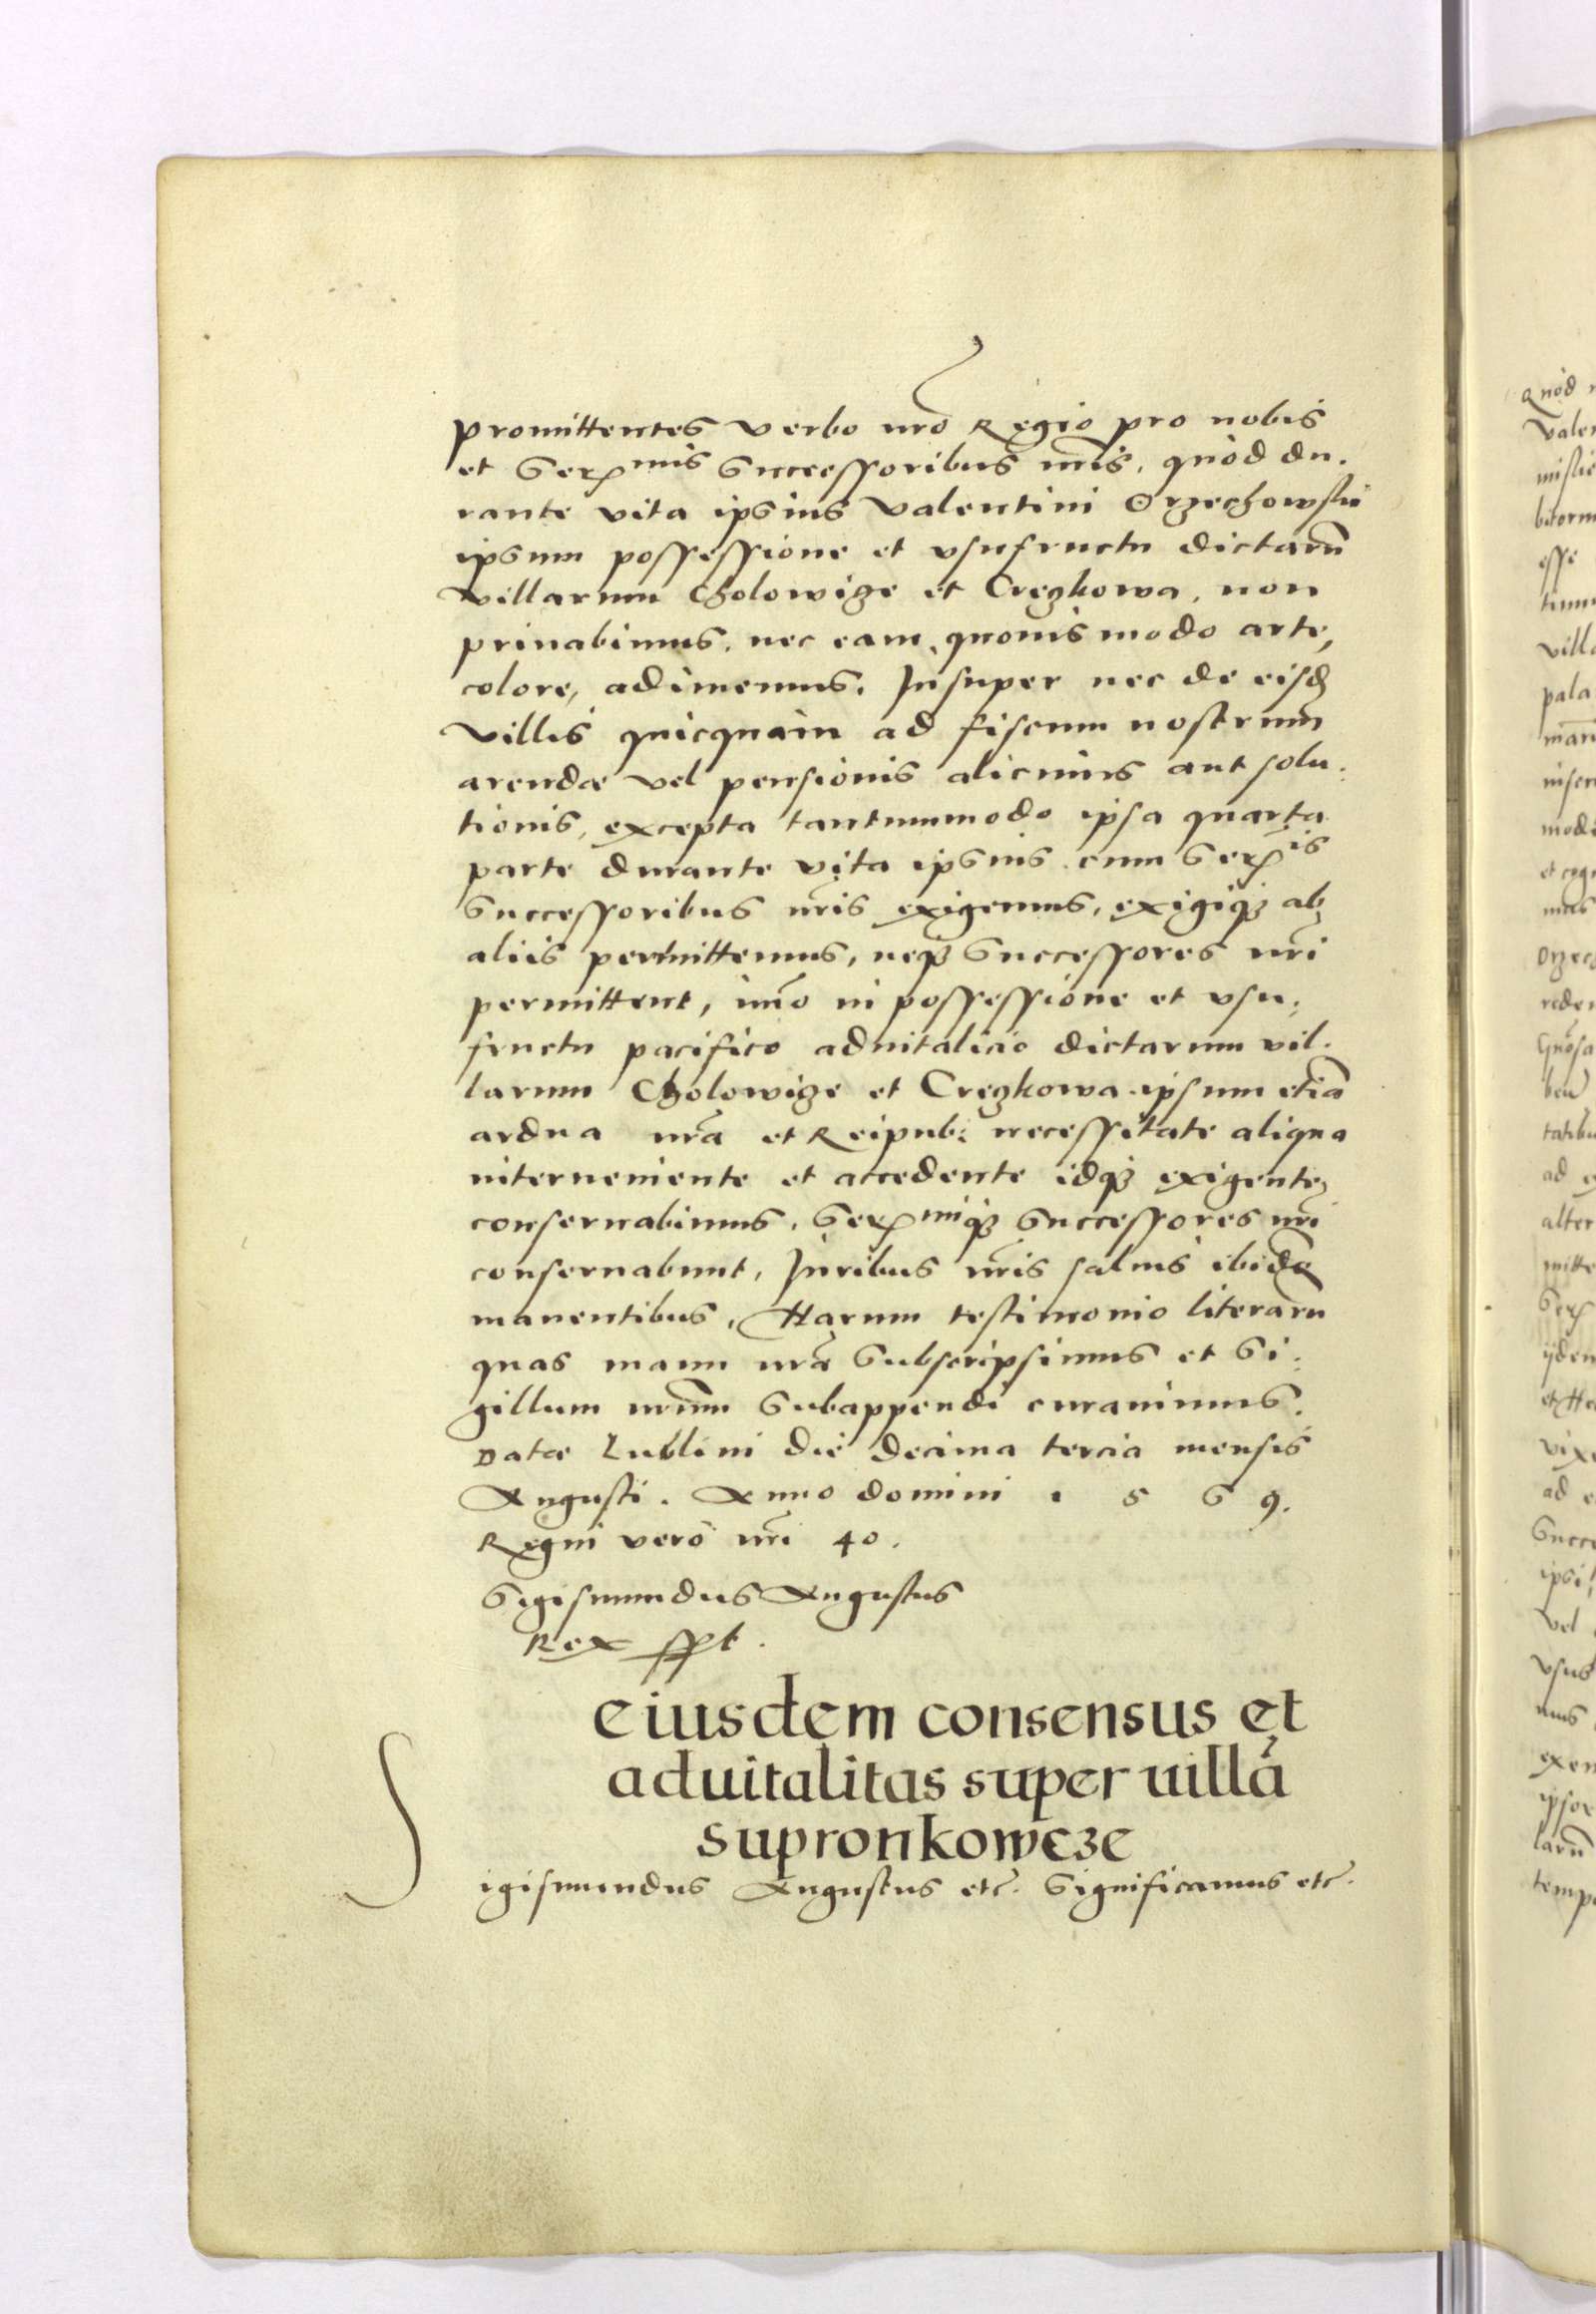 promittentes verbo nrõ Regio pro nobis
et Serenmis Successoribus nris, quod du.
rante vita ipsius Valentini Orzechowski
ipsum possessione et vsufructu dictarũ
villarum Cholowize et Cregkowa, non
priuabimus, nec eam quouis modo arte,
colore, adimemus. Insuper nec de eisd
villis quicquam ad fiscum nostrum
arendæ vel pensionis alicuius aut solu:
tionis, excepta tantummodo ipsa quarta
parte durante vita ipsius cum Serenis
Successoribus nris exigemus, exigiq3 ab
aliis permittemus, neq3 Successores nri
permittent, imo in possessione et vsu,
fructu pacifico aduitalicio dictarum vil.
larum Cholowize et Cregkowa ipsum etiã
ardua nra et Reipub: necessitate aliqua
interueniente et accedente idq3 exigente,
conseruabimus, Serenmiq3 Successores nri
conseruabunt, Iuribus nris saluis ibidẽ
manentibus, Harum testimonio literarũ
quas manu nra Subscripsimus et Si:
gillum nrum Subappendi curauimus.
Datæ Lublini die decima tercia mensis
Augusti. Anno domini 1 5 6 9.
Regni vero nri 40.
Sigismundus Augustus
Rex sspt.
eiusdem consensus et
aduitalitas super uillã
supronkowcze
Sigismundus Augustus etc. Significamus etc.